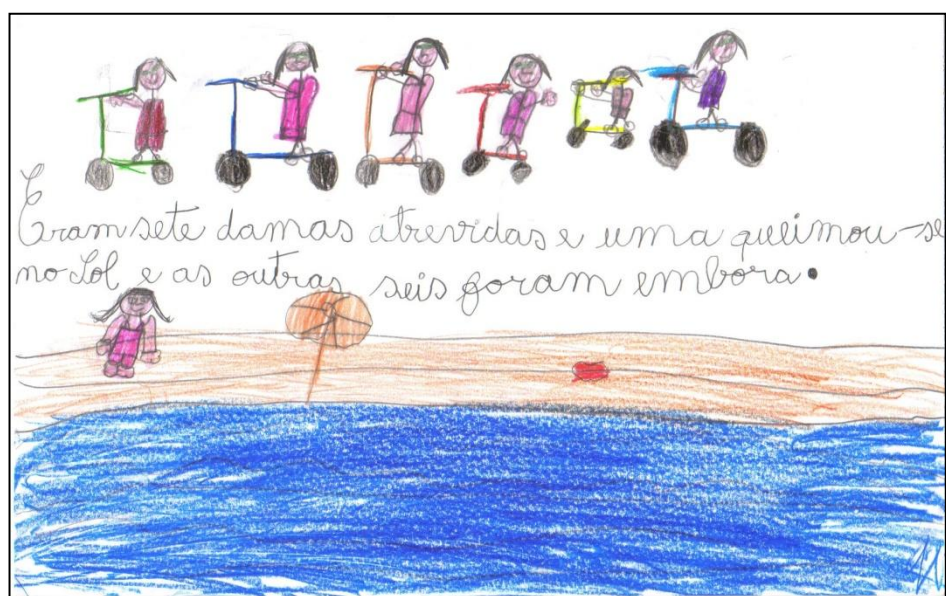 Eram sete damas atrevidas e uma queimou-se
no Sol e as outras seis foram embora.